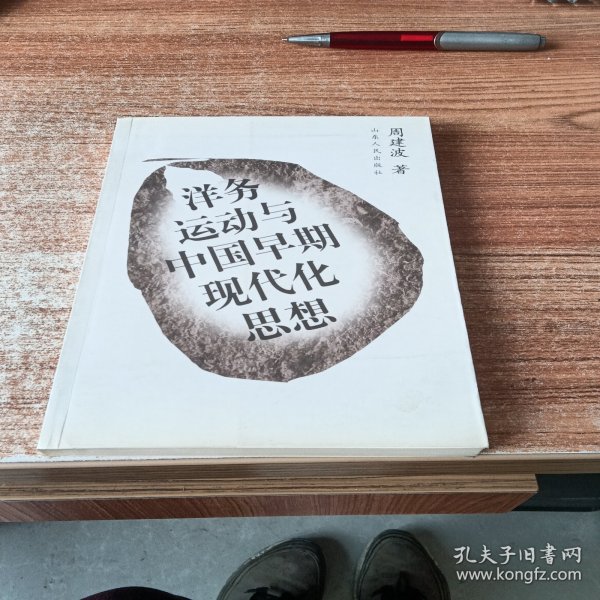 周建波 著
山东人民出版社
洋务
运动与
中国早期
现代化
思想
孔夫子旧书网
www.kongfz.com